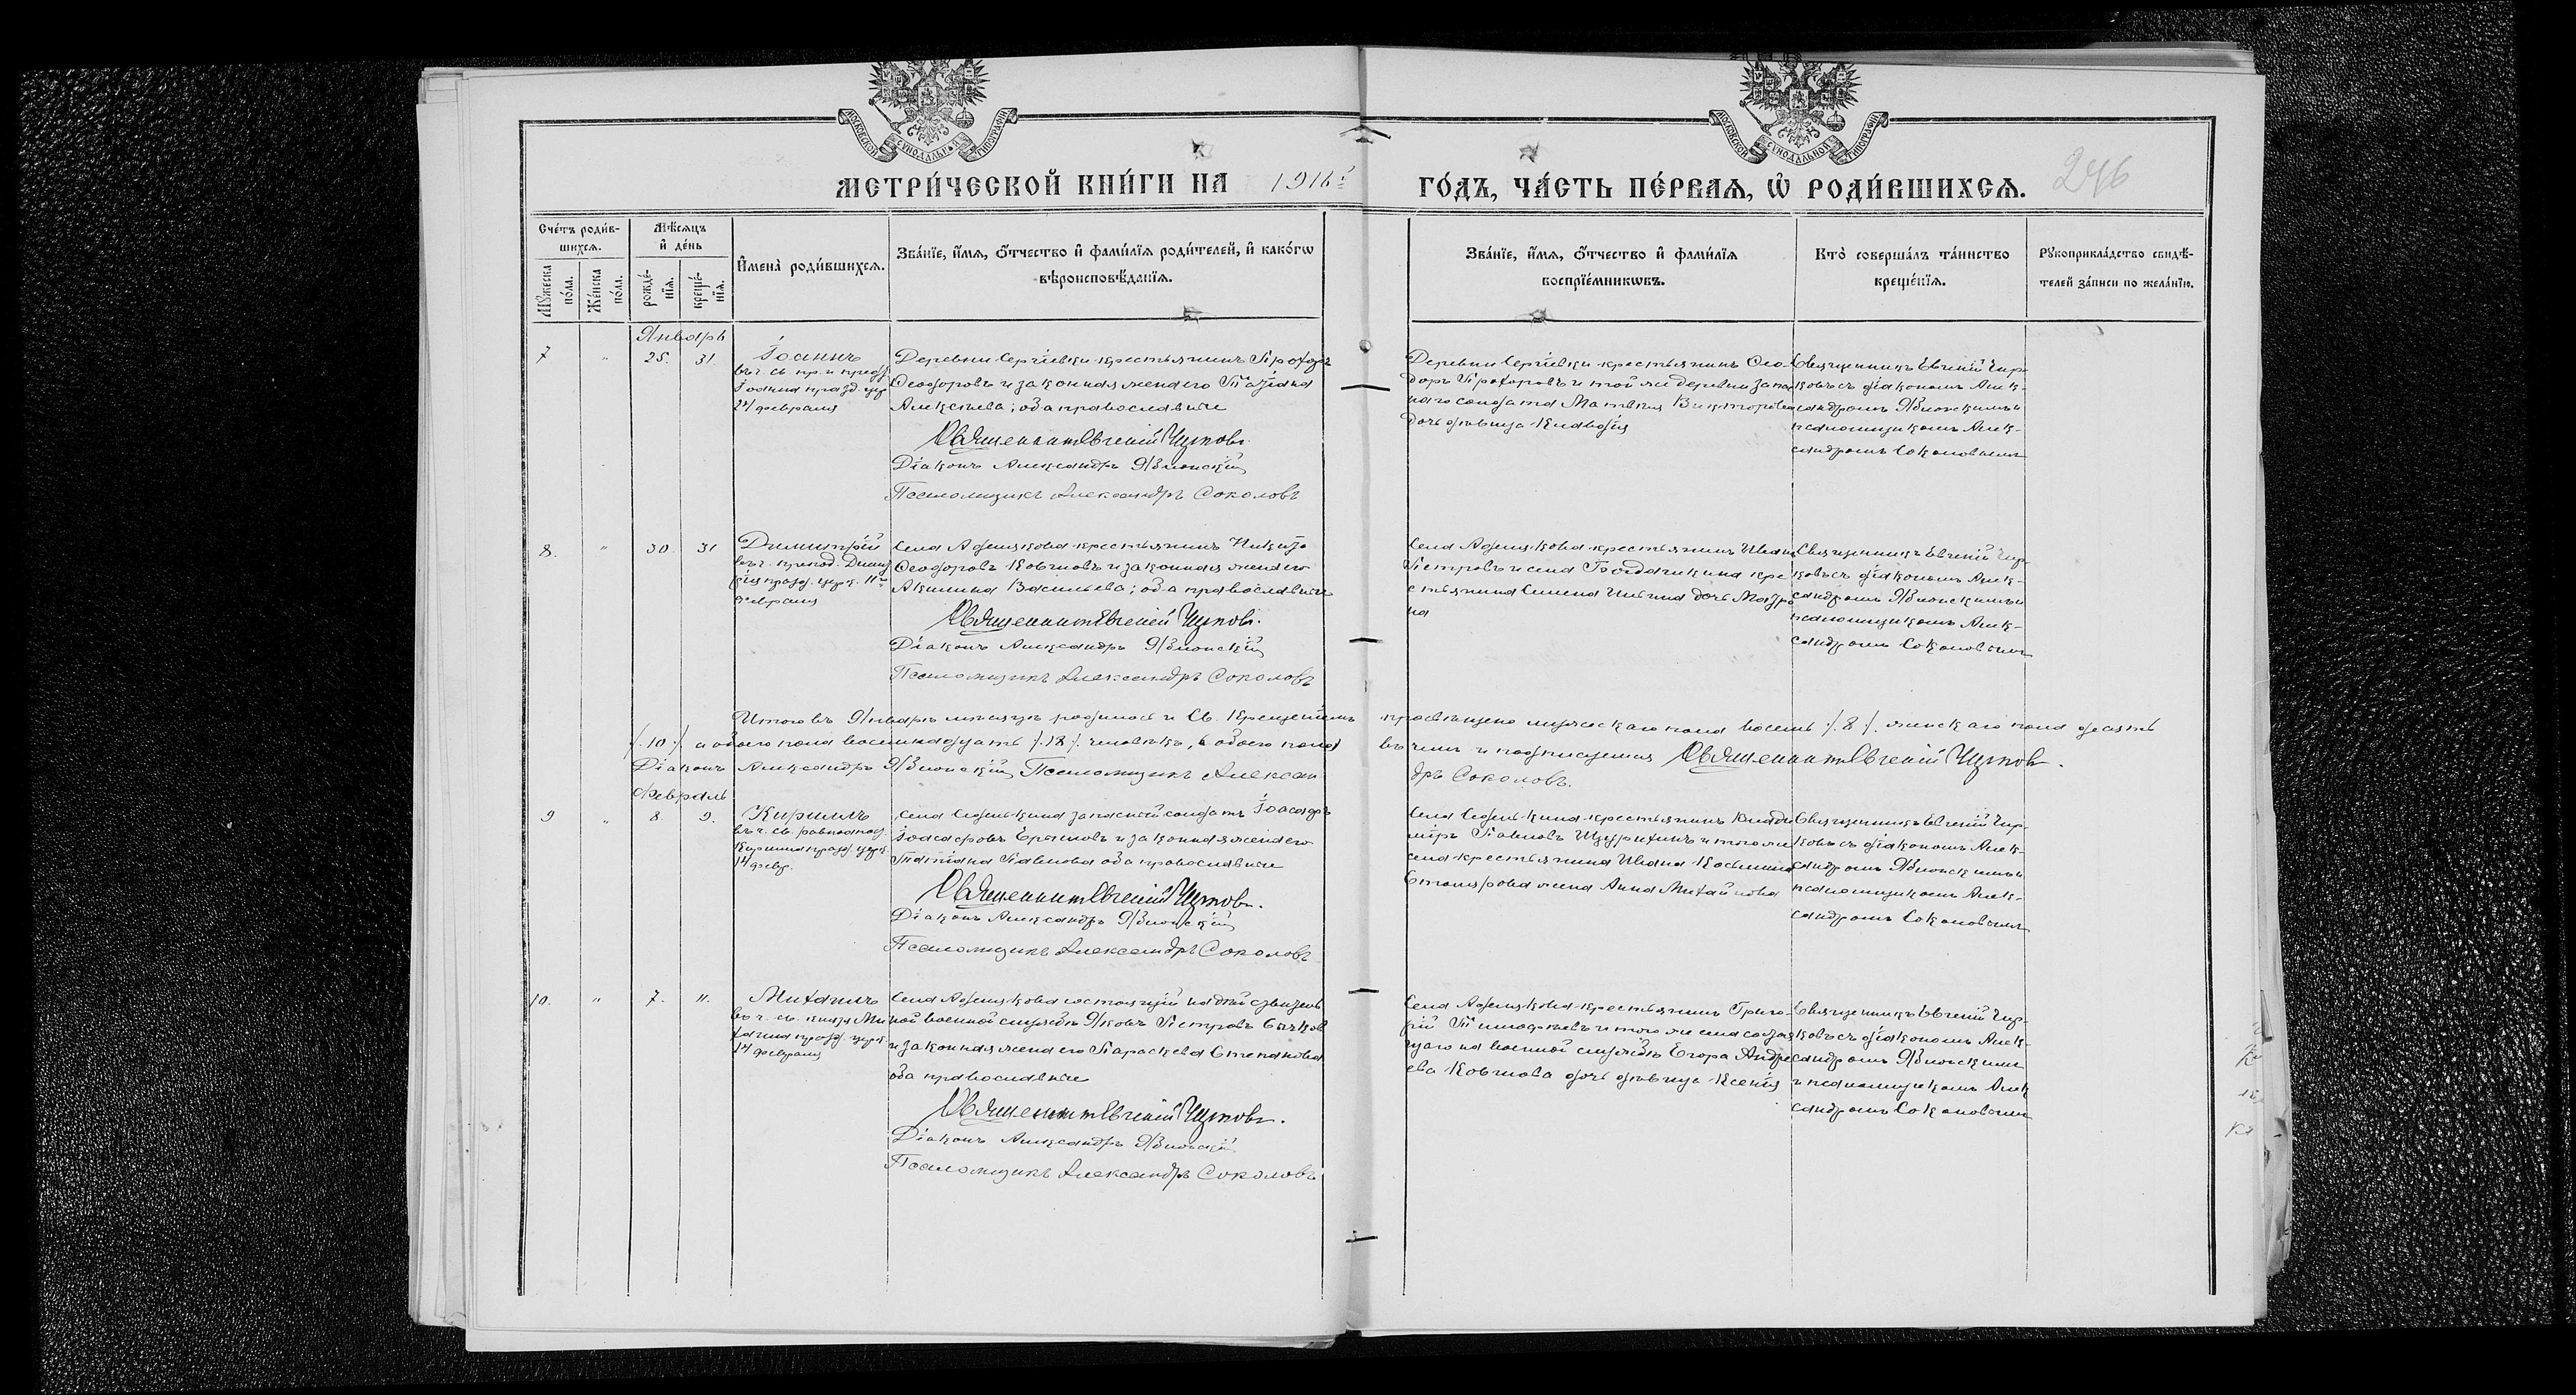 МОСКОВСКОЙ СУНОДАЛЬНОЙ ТИПОГРАФІИ
МОСКОВСКОЙ СУНОДАЛЬНОЙ ТИПОГРАФІИ
МЕТРИ́ЧЕСКОЙ КНИ́ГИ НА 1916 ГО́ДЪ, ЧА́СТЬ ПЕ́РВАЯ, Ѡ҆ РОДИ́ВШИХСЯ.
246
Сче́тъ роди́в-
шихся.
Мѣ́сяцъ
и҆ де́нь
Мꙋ́жеска по́ла.
Же́нска по́ла.
рожде́-
нїя.
креще́-
нїя.
И҆мена̀ роди́вшихся.
Зва́нїе, и҆́мя, ѻ҆́тчество и҆ фами́лїя роди́телей, и҆ како́гѡ
вѣроисповѣ́данїя.
Зва́нїе, и҆́мя, ѻ҆́тчество и҆ фами́лїя
воспрїе́мникѡвъ.
Кто̀ соверша́лъ та́инство
креще́нїя.
Рꙋкоприкла́дство свидѣ́-
телей за́писи по жела́нїю.
Январь
7 " 25. 31.
Іоаннъ
въ ч. св. пр. и предт.
Іоанна празд. цер.
24 февраля
Деревни Сергіевки крестьянинъ Прохоръ
Ѳеодоровъ и законная жена его Татіана
Алексѣева; оба православные
Священникъ Евгеній
Діаконъ Александръ Яблонскій
Псаломщикъ Александръ Соколовъ
Деревни Сергіевки крестьянинъ Ѳео-
доръ Прохоровъ и той же деревни запас-
наго солдата Матвѣя Викторова
дочь дѣвица Клавдія
Священникъ Евгеній
съ діакономъ Алек-
сандромъ Яблонскимъ и
псаломщикомъ Алек-
сандромъ Соколовымъ
8. " 30. 31
Димитрій
въ ч. препод. Дими
трія празд. церк. 11го
февраля
Села Адешкова крестьянинъ Никита
Ѳеодоровъ Ковшовъ и законная жена его
Акилина Васильева; оба православные
Священникъ Евгеній
Діаконъ Александръ Яблонскій
Псаломщикъ Александръ Соколовъ
Села Адешкова крестьянинъ Иванъ
Петровъ и села кре
стьянина Симеона дочь Матро
на
Священникъ Евгеній
съ діакономъ Алек-
сандромъ Яблонскимъ и
псаломщикомъ Алек-
сандромъ Соколовымъ
Итого въ Январѣ мѣсяцѣ родилось и Св. Крещеніемъ просвѣщено мужескаго пола восемь /.8./. женскаго пола десять
/.10./. а обоего пола восемнадцать /.18./. человѣкъ, обоего пола въ чемъ и подписуемся Священникъ Евгеній
Діаконъ Александръ Яблонскій Псаломщикъ Алексан
дръ Соколовъ.
Февраль
9 " 8. 9.
Кириллъ
въ ч. св. равноапос.
Кирилла празд. церк.
14 февр.
Села запасной солдатъ Іоасафъ
Іоасафовъ и законная жена его
Татіана Павлова оба православные
Священникъ Евгеній
Діаконъ Александръ Яблонскій
Псаломщикъ Александръ Соколовъ
Села крестьянинъ Влади
міръ Павловъ и того же
села крестьянина Ивана Косьмина
жена Анна Михайлова
Священникъ Евгеній
съ діакономъ Алек-
сандромъ Яблонскимъ и
псаломщикомъ Алек-
сандромъ Соколовымъ
10. " 7. 11.
Михаилъ
въ ч. св. князя Ми
хаила празд. церк.
14 февраля
Села Адешкова состоящій на дѣйствитель
ной военной службѣ Яковъ Петровъ
и законная жена его Параскева Степанова
оба православные
Священникъ Евгеній
Діаконъ Александръ Яблонскій
Псаломщикъ Александръ Соколовъ
Села Адешкова крестьянинъ Григо-
рій Тимофеевъ и того же села состоя
щаго на военной службѣ Егора Андре
ева Ковшова дочь дѣвица Ксенія
Священникъ Евгеній
съ діакономъ Алек-
сандромъ Яблонскимъ
и псаломщикомъ Алек
сандромъ Соколовымъ